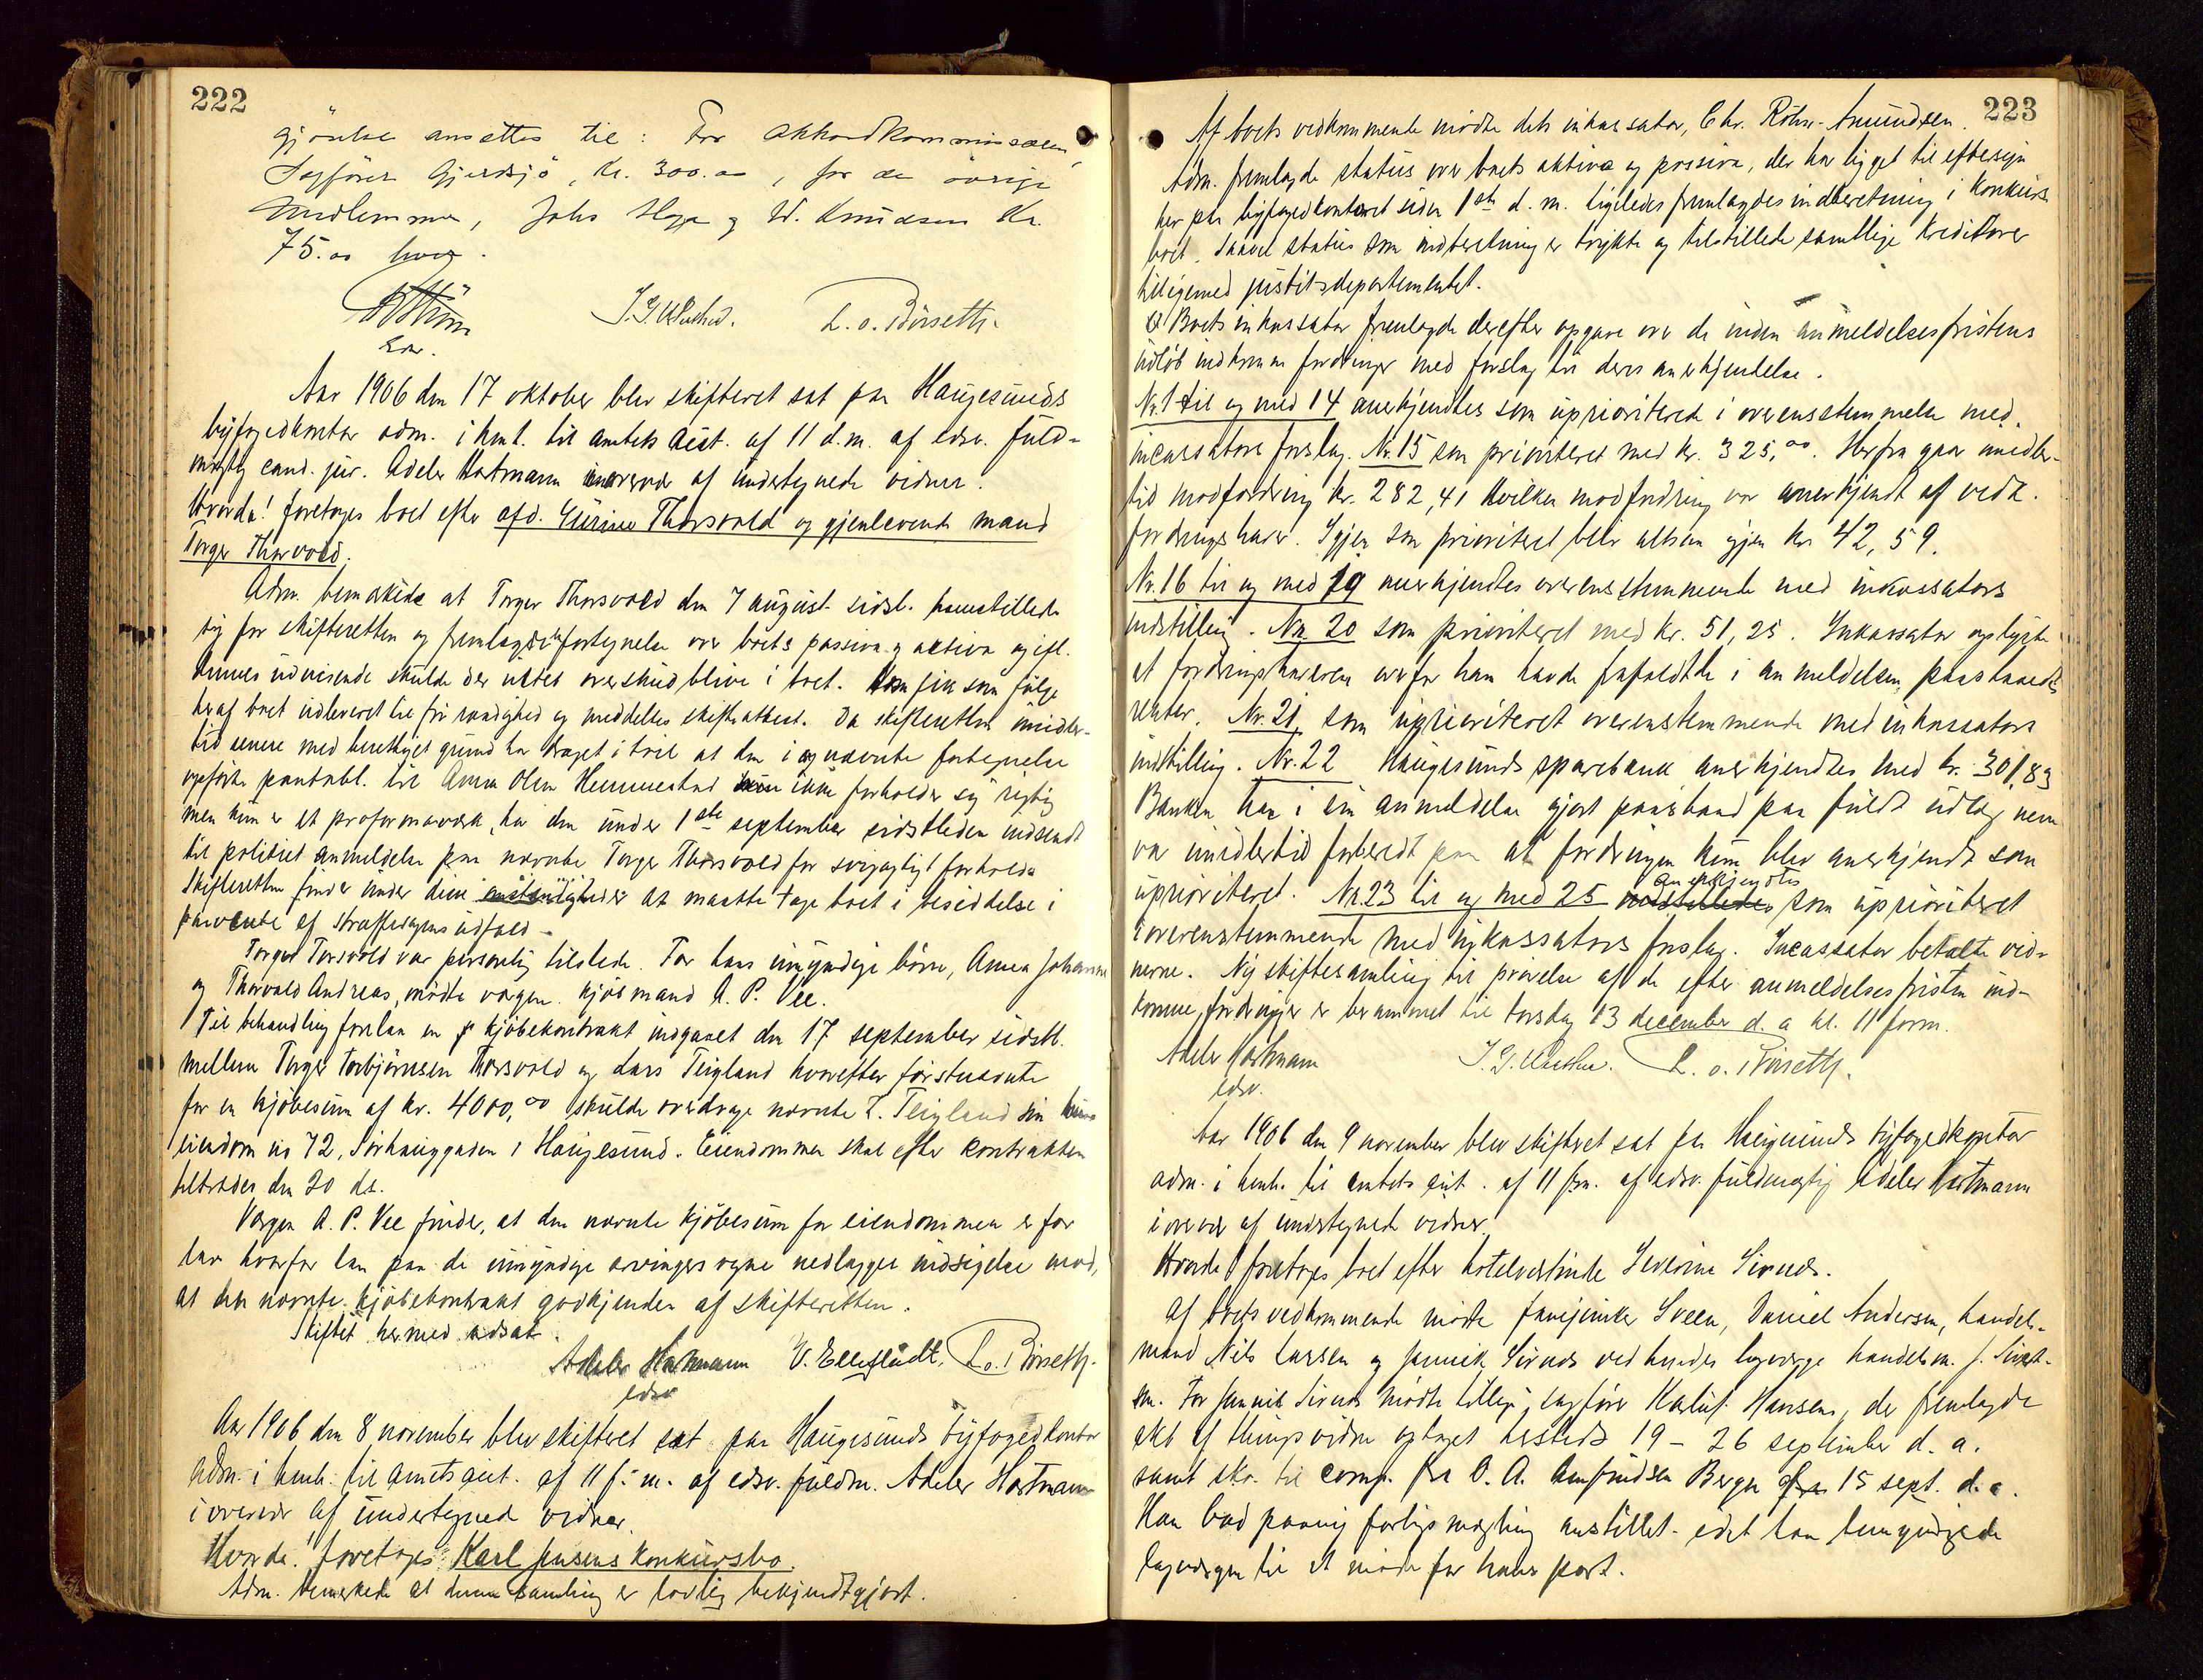 222
gjörelse ansettes til: For akkordkommissæren,
Sagförer Gjerdsjö, Kr. 300.00, for de övrige
medlemmer, Johs Hope og W. Knudsen Kr.
75.00 hver.
L. O. Börseth.
Edsv.
Aar 1906 den 17 oktober blev skifteret sat paa Haugesunds
byfogedkontor adm. i hnt. til amtets aut. af 11 d.m. af edsv. fuld-
mægtig cand. jur. Adeler Hartmann i overvær af undertegnede vidner.
Hvorda! foretoges boet efter afd. Gurine Thorsvold og gjenlevende mand
Torger Thorsvold.
Adm. bemærkede at Torger Thorsvold den 7 august sidstl. fremstillede
sig for skifteretten og fremlagde fortegnelse over boets passiva og aktiva og ifl.
dennes udvisende skulde der intet overskud blive i boet. Han fik som følge
heraf boet udleveret til fri raadighed og meddeltes skifteattest. Da skifteretten imidler-
tid senere med berettiget grund har draget i tvil at den i nævnte fortegnelse
opførte pantobl. til Anna Olsen Hemmestad ikke forholder sig rigtig
men kun er et proformaværk, har den under 1ste september sidstleden indsendt
til politiet anmeldelse paa nævnte Torger Thorsvold for svigagtigt forhold.
Skifteretten finder under disse omstændigheder at maatte tage boet i besiddelse i
paavente af straffesagens udfald.
Torger Torsvold var personlig tilstede. For hans umyndige börn, Anna Johanne
og Thorvald Andreas, mödte værgen kjöbmand A. P. Vee.
Til behandling forelaa en kjöbekontrakt indgaaet den 17 september sidstl.
mellem Torger Torbjörnsen Thorsvold og Lars Teigland hvorefter förstnævnte
for en kjöbesum af kr. 4000,00 skulde overdrage nævnte L. Teigland sin
eiendom no 72, Sörhauggaden i Haugesund. Eiendommen skal efter kontrakten
tiltrædes den 20 ds.
Værgen A. P. Vee finder, at den nævnte kjöbesum for eiendommen er for
lav hvorfor han paa de umyndige arvingers vegne nedlagger indsigelse mod,
at den nævnte kjöbekontrakt godkjendes af skifteretten.
Skiftet hermed udsat.
Adeler Hartmann V. Elleflådt. L. o. Börseth.
edsv
Aar 1906 den 8 november blev skifteret sat paa Haugesunds byfogedkontor
adm. i henh. til amtets aut. af 11 f. m. af edsv. fuldm. Adeler Hartmann
i overvær af undertegnede vidner.
Hvorda! foretoges: Karl Jensens konkursbo.
Adm. bemerkede at denne samling er lovlig bekjendtgjort.
223
Af boets vedkommende mödte dets inkassator, Chr. Röhne-Amundsen.
Adm. fremlagde status over boets aktiva og passiva, der har ligget til eftersyn
her paa byfogedkontoret siden 1ste d. m. Ligeledes fremlagdes indberetning i konkurs
boet. Saavel status som indberetning er trykte og tilstillede samtlige kreditorer
tilligemed justitsdepartementet.
Boets inkassator fremlagde derefter opgave over de inden anmeldelsesfristens
udlöb indkomne fordringer med forslag til deres anerkjendelse.
Nr. 1 til og med 14 anerkjendtes som uprioriterede i overensstemmelse med
incassators forslag. Nr. 15 som prioriteret med kr. 325,00. Herfra gaar imidler-
tid modfordring kr. 282,41 hvilken modfordring var anerkjendt af vedk.
fordringshaver. Igjen som prioriteret blir altsaa igjen kr 42,59.
Nr. 16 til og med 19 anerkjendtes overensstemmende med inkassators
indstilling. Nr. 20 som prioriteret med kr. 51,25. Inkassator oplyste
at fordringshaveren overfor ham havde frafaldt de i anmeldelsen paastaaede
renter. Nr. 21 som uprioriteret overenstemmende med inkassators
indstilling. Nr. 22 Haugesunds sparebank anerkjendtes med kr. 301,83
Banken har i sin anmeldelse gjort paastand paa fuldt udlæg, men
var imidlertid forberedt paa at fordringen kun blev anerkjendt som
uprioriteret. Nr. 23 til og med 25 anerkjendtes som uprioriteret
i overenstemmende med inkassators forslag. Incassator betalte vid-
nerne. Ny skiftesamling til prövelse af de efter anmeldelsesfristen ind-
komne fordringer er berammet til torsdag 13 december d. a kl. 11 form.
Adeler Hartmann L. o. Börseth.
edsv.
Aar 1906 den 9 november blev skifteret sat paa Haugesunds byfogedkontor
adm. i henh. til amtets aut. af 11 f.m. af edsv. fuldmægtig Adeler Hartmann
i overvær af undertegnede vidner.
Hvorda! foretoges boet efter hotelvertinde Severine Sivuds.
Af boets vedkommende mödte fanejunker Sveen, Daniel Andersen, handels-
mand Nils Larsen og Jannik Sivuds ved hendes lagværge handelsm. J. Sivert-
sen. For Jannik Sivuds mödte tillige sagförer Karluf Hansen, der fremlagde
akt af thingsvidne optaget hersteds 19 - 26 september d. a.
samt skr. til comp. fra O. A. Amfindsen Bergen af 15 sept. d. a.
Han bad paany forligsmægling anstillet idet han
lagværgen til at möde for hans part.